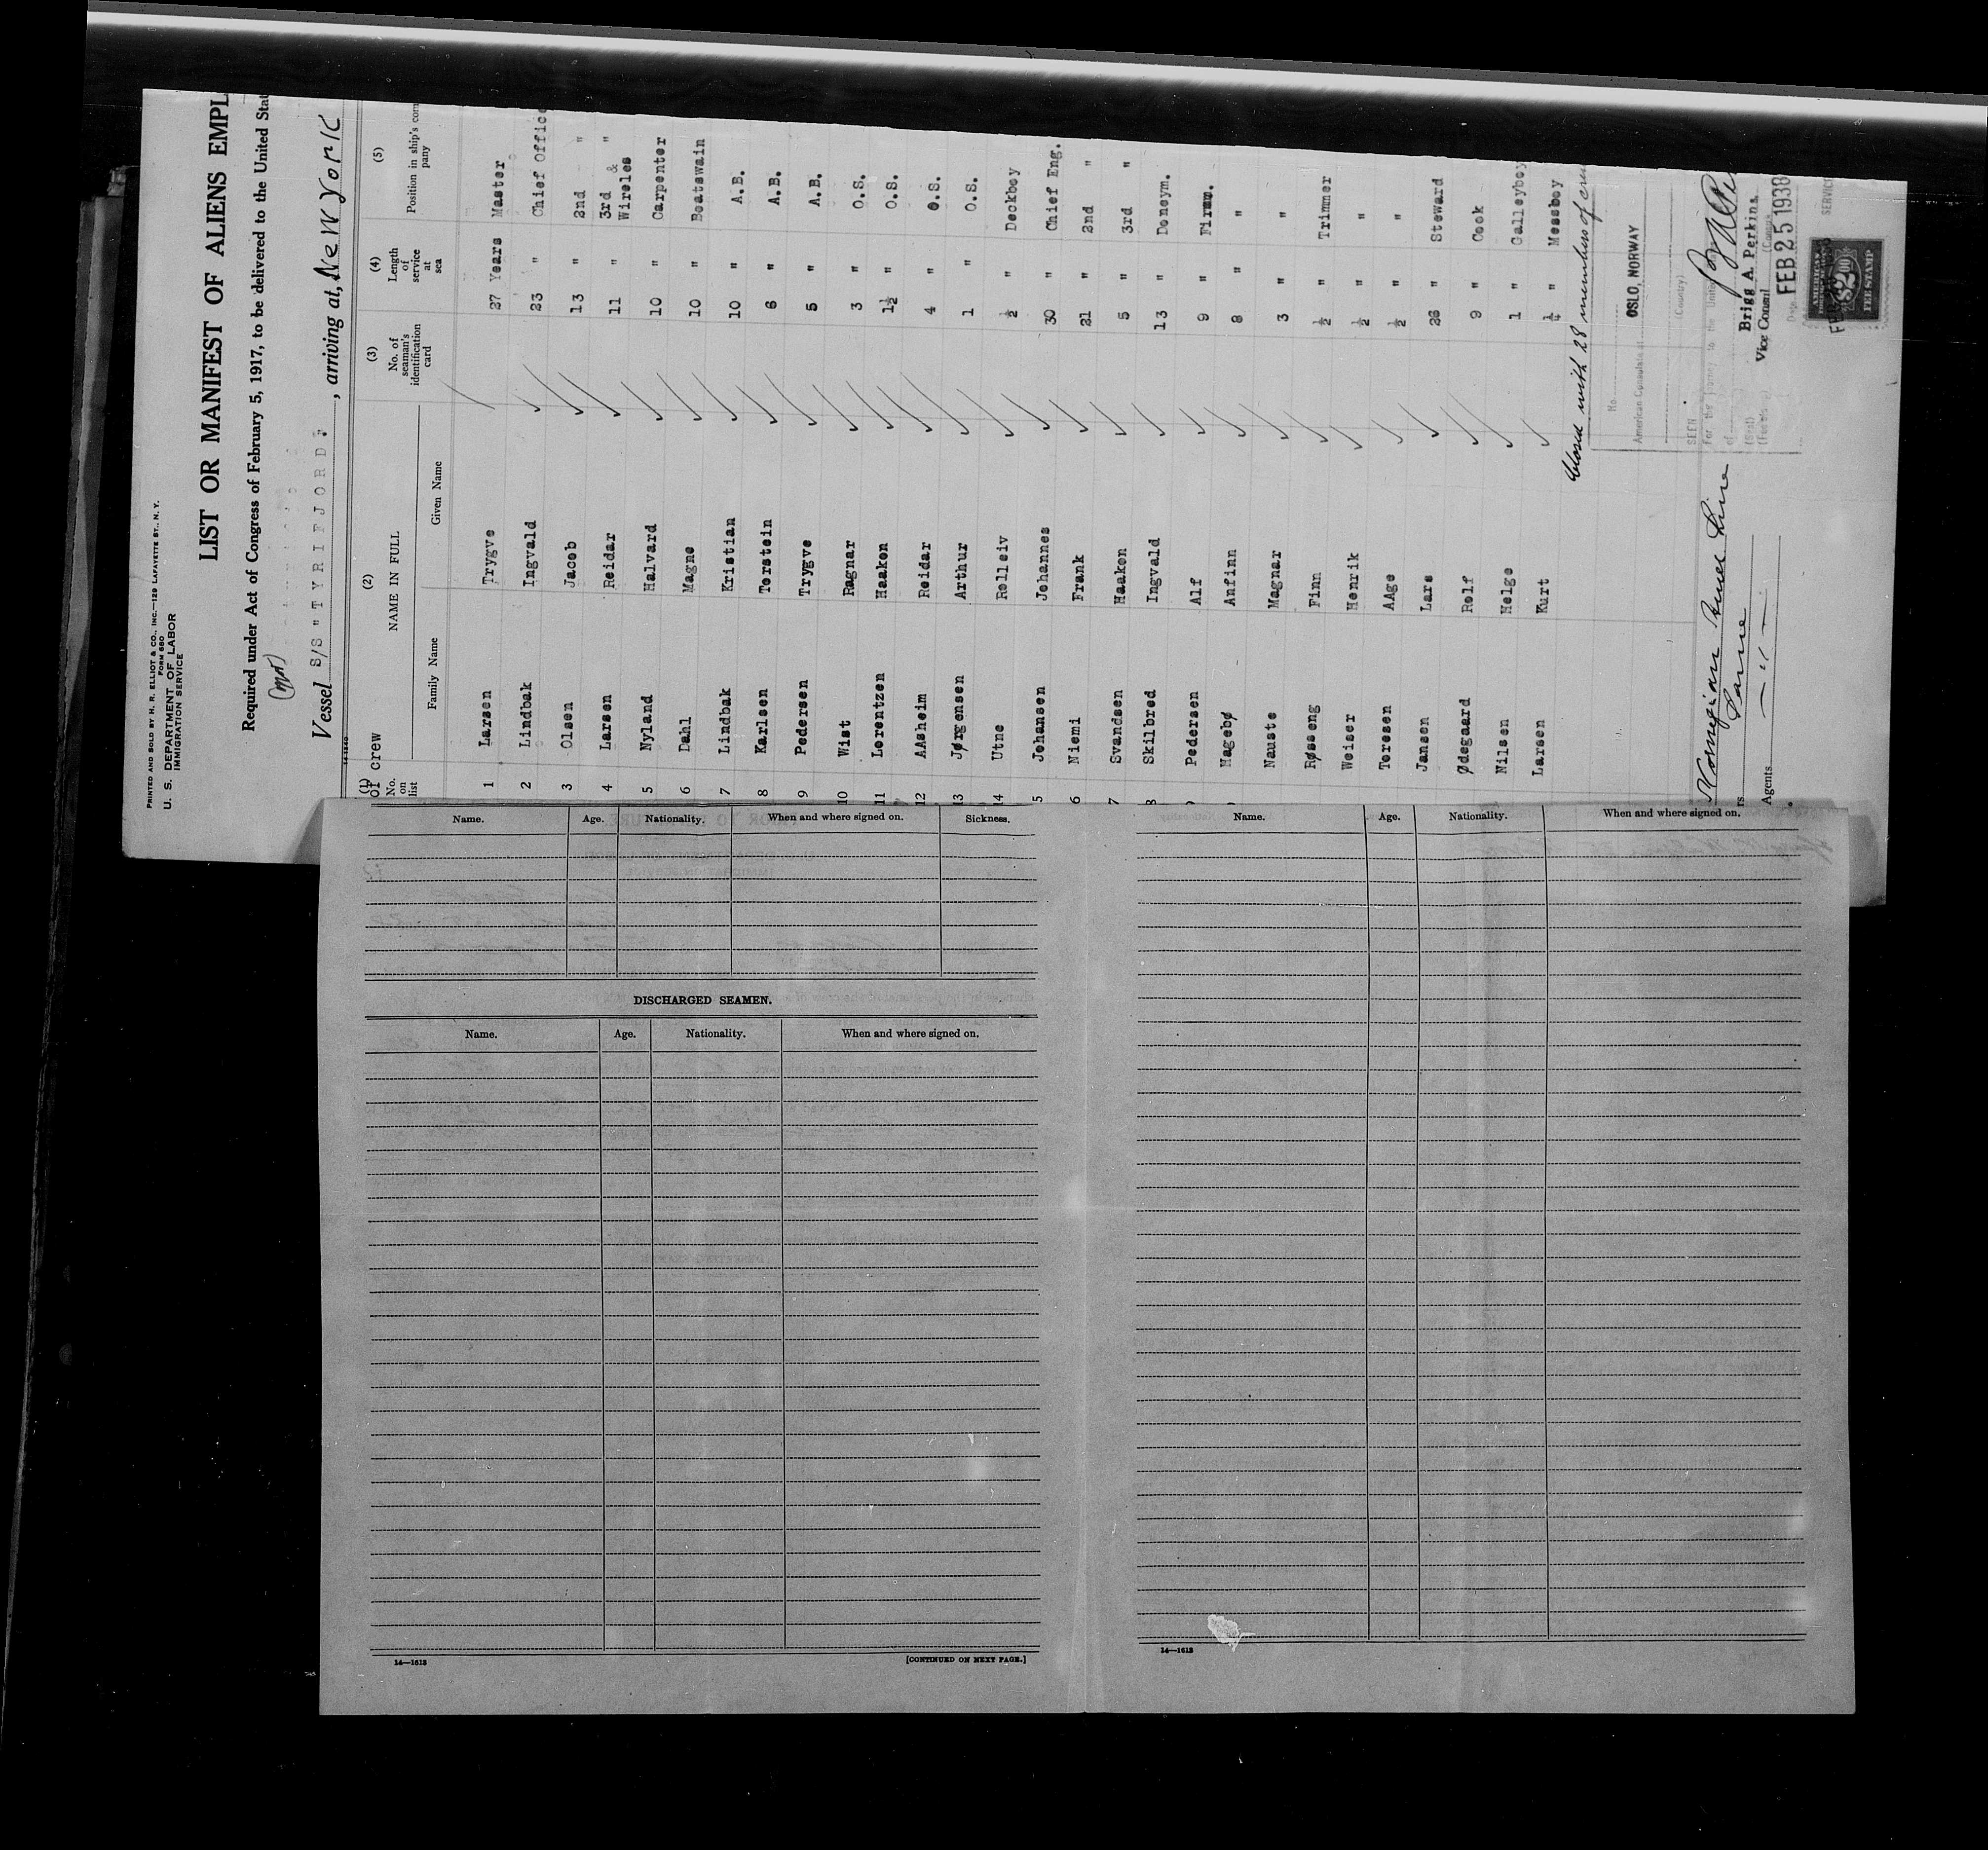 PRINTED AND SOLD BY H. R. ELLIOT & CO., INC.—129 LAFAYETTE ST., N. Y.
FORM 680
U. S. DEPARTMENT OF LABOR
IMMIGRATION SERVICE
LIST OR MANIFEST OF ALIENS EMPL
Required under Act of Congress of February 5, 1917, to be delivered to the United Stat
Vessel S/S "TYRIFJORD", arriving at, New York
(1) (2) (3) (4) (5)
of crew
No. on list NAME IN FULL No. of seaman's identification card Length of service at sea Position in ship's com pany
Family Name Given Name
1 Larsen Trygve 27 Years Master
2 Lindbak Ingvald 23 " Chief Office
3 Olsen Jacob 13 " 2nd "
4 Larsen Reidar 11 " 3rd & " Wireles
5 Nyland Halvard 10 " Carpenter
6 Dahl Magne 10 " Boatswain
7 Lindbak Kristian 10 " A.B.
8 Karlsen Torstein 6 " A.B.
9 Pedersen Trygve 5 " A.B.
10 Wist Ragnar 3 " O.S.
11 Lorentzen Haakon 1½ " O.S.
12 AAsheim Reidar 4 " O.S.
13 Jørgensen Arthur 1 " O.S.
14 Utne Rolleiv ½ " Deckboy
5 Johansen Johannes 30 " Chief Eng.
6 Niemi Frank 21 " 2nd "
7 Svandsen Haakon 5 " 3rd "
8 Skilbred Ingvald 13 " Doneym.
9 Pedersen Alf 9 " Firem.
Hagebø Anfinn 8 " "
Nauste Magnar 3 " "
Røsseng Finn ½ " Trimmer
Weiser Henrik ½ " "
Toresen AAge ½ " "
Jansen Lars 26 " Steward
Ødegaard Rolf 9 " Cook
Nilsen Helge 1 " Galleyboy
Larsen Kurt ¼ " Messboy
Closed with 28 members of crew
No.
American Consulate at OSLO, NORWAY
(Country)
SEEN
For the journey to the United
of
(Seal)
Brigg A. Perkins
Vice Consul
Date FEB 25 1938
AMERICAN
$2.00
FEE STAMP
SERVICE
Norwegian Amer. Line
Same
rs
Agents — " —
Name. Age. Nationality. When and where signed on. Sickness.
DISCHARGED SEAMEN.
Name. Age. Nationality. When and where signed on.
14—1613 [CONTINUED ON NEXT PAGE.]
Name. Age. Nationality. When and where signed on.
14—1613